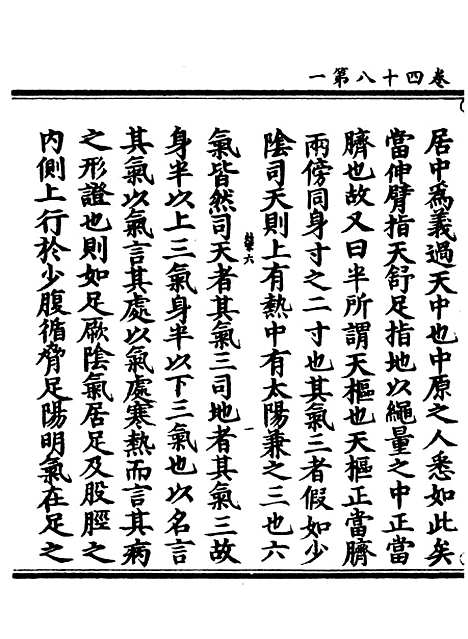 卷四十八第一
居中爲義過天中也中原之人悉如此矣
當伸臂指天舒足指地以繩量之中正當
臍也故又曰半所謂天樞也天樞正當臍
兩傍同身寸之二寸也其氣三者假如少
陰司天則上有熱中有太陽兼之三也六
六 一
氣皆然司天者其氣三司地者其氣三故
身半以上三氣身半以下三氣也以名言
其氣以氣言其處以氣處寒熱而言其病
之形證也則如足厥陰氣居足及股脛之
內側上行於少腹循脅足陽明氣在足之